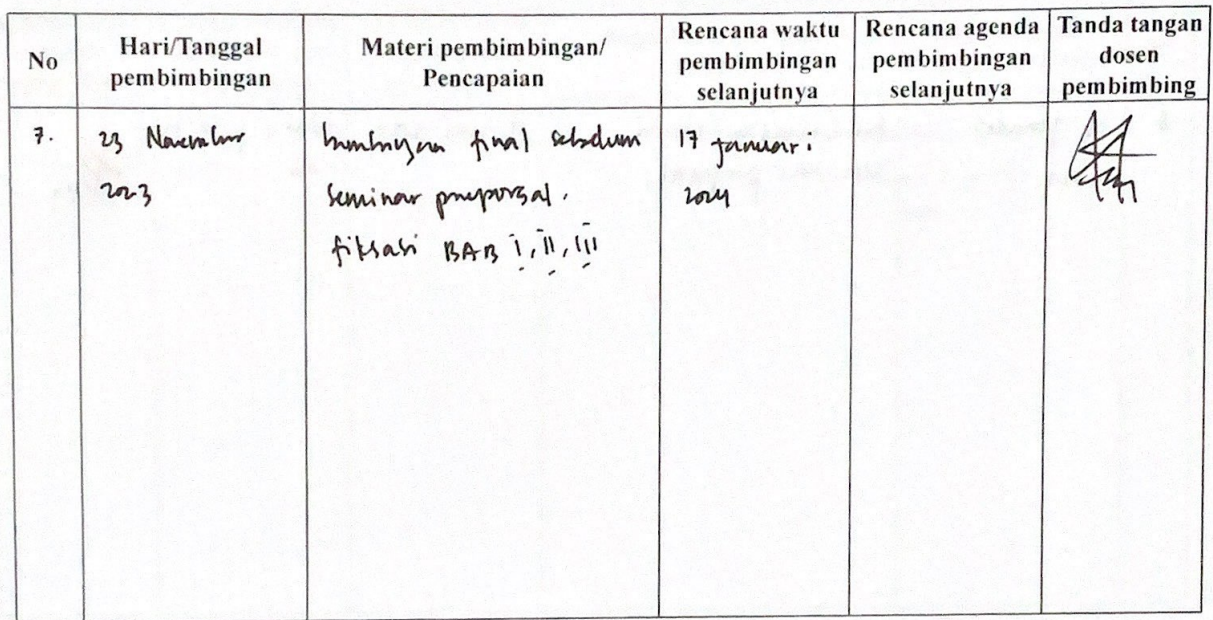 No
Hari/Tanggal
pembimbingan
Materi pembimbingan/
Pencapaian
Rencana waktu
pembimbingan
selanjutnya
Rencana agenda
pembimbingan
selanjutnya
Tanda tangan
dosen
pembimbing
7.
23 November
2023
bimbingan final sebelum
seminar proporsal.
fiksasi BAB I, II, III
17 januari
2024